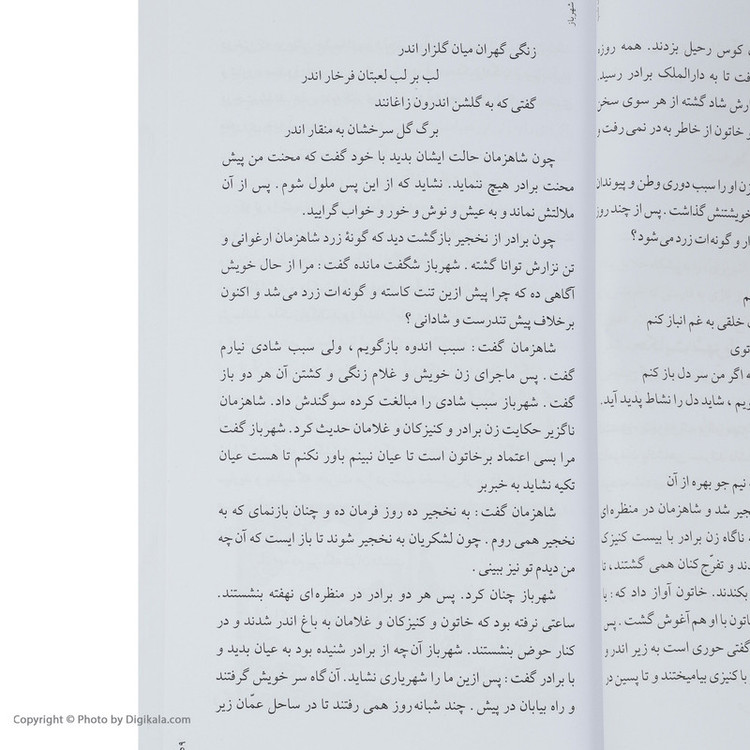 شهرباز
زنگی گهران میان گلزار اندر
لب بر لب لعبتان فرخار اندر
گفتی که به گلشن اندرون زاغانند
برگ گل سرخشان به منقار اندر
چون شاهزمان حالت ایشان بدید با خود گفت که محنت من پیش
محنت برادر هیچ ننماید. نشاید که از این پس ملول شوم. پس از آن
ملالتش نماند و به عیش و نوش و خور و خواب گرایید.
چون برادر از نخجیر بازگشت دید که گونۀ زرد شاهزمان ارغوانی و
تن نزارش توانا گشته. شهرباز شگفت مانده گفت: مرا از حال خویش
آگاهی ده که چرا پیش ازین تنت کاسته و گونه‌ات زرد می‌شد و اکنون
برخلاف پیش تندرست و شادانی؟
شاهزمان گفت: سبب اندوه بازگویم، ولی سبب شادی نیارم
گفت. پس ماجرای زن خویش و غلام زنگی و کشتن آن هر دو باز
گفت. شهرباز سبب شادی را مبالغت کرده سوگندش داد. شاهزمان
ناگزیر حکایت زن برادر و کنیزکان و غلامان حدیث کرد. شهرباز گفت
مرا بسی اعتماد برخاتون است تا عیان نبینم باور نکنم تا هست عیان
تکیه نشاید به خبربر
شاهزمان گفت: به نخجیر ده روز فرمان ده و چنان بازنمای که به
نخجیر همی روم. چون لشکریان به نخجیر شوند تا باز ایست که آن‌چه
من دیدم تو نیز ببینی.
شهرباز چنان کرد. پس هر دو برادر در منظره‌ای نهفته بنشستند.
ساعتی نرفته بود که خاتون و کنیزکان و غلامان به باغ اندر شدند و در
کنار حوض بنشستند. شهرباز آن‌چه از برادر شنیده بود به عیان بدید و
با برادر گفت: پس ازین ما را شهریاری نشاید. آن‌گاه سر خویش گرفتند
و راه بیابان در پیش. چند شبانه‌روز همی رفتند تا در ساحل عمّان زیر
کوس رحیل بزدند. همه روزه
فت تا به دارالملک برادر رسید.
ارش شاد گشته از هر سوی سخن
خاتون از خاطر به در نمی رفت و
زن او را سبب دوری وطن و پیوندان
خویشتنش گذاشت. پس از چند روز
ار و گونه‌ات زرد می‌شود؟
م
خلقی به غم انباز کنم
توی
ه اگر من سر دل باز کنم
ویم، شاید دل را نشاط پدید آید.
نیم جو بهره از آن
جیر شد و شاهزمان در منظره‌ای
ناگاه زن برادر با بیست کنیزک
دند و تفرّج‌کنان همی گشتند، تا
بکندند. خاتون آواز داد که: یا
اتون با او هم آغوش گشت. پس
گفتی حوری است به زیر اندر و
با کنیزی بیامیختند و تا پسین در
Copyright © Photo by Digikala.com